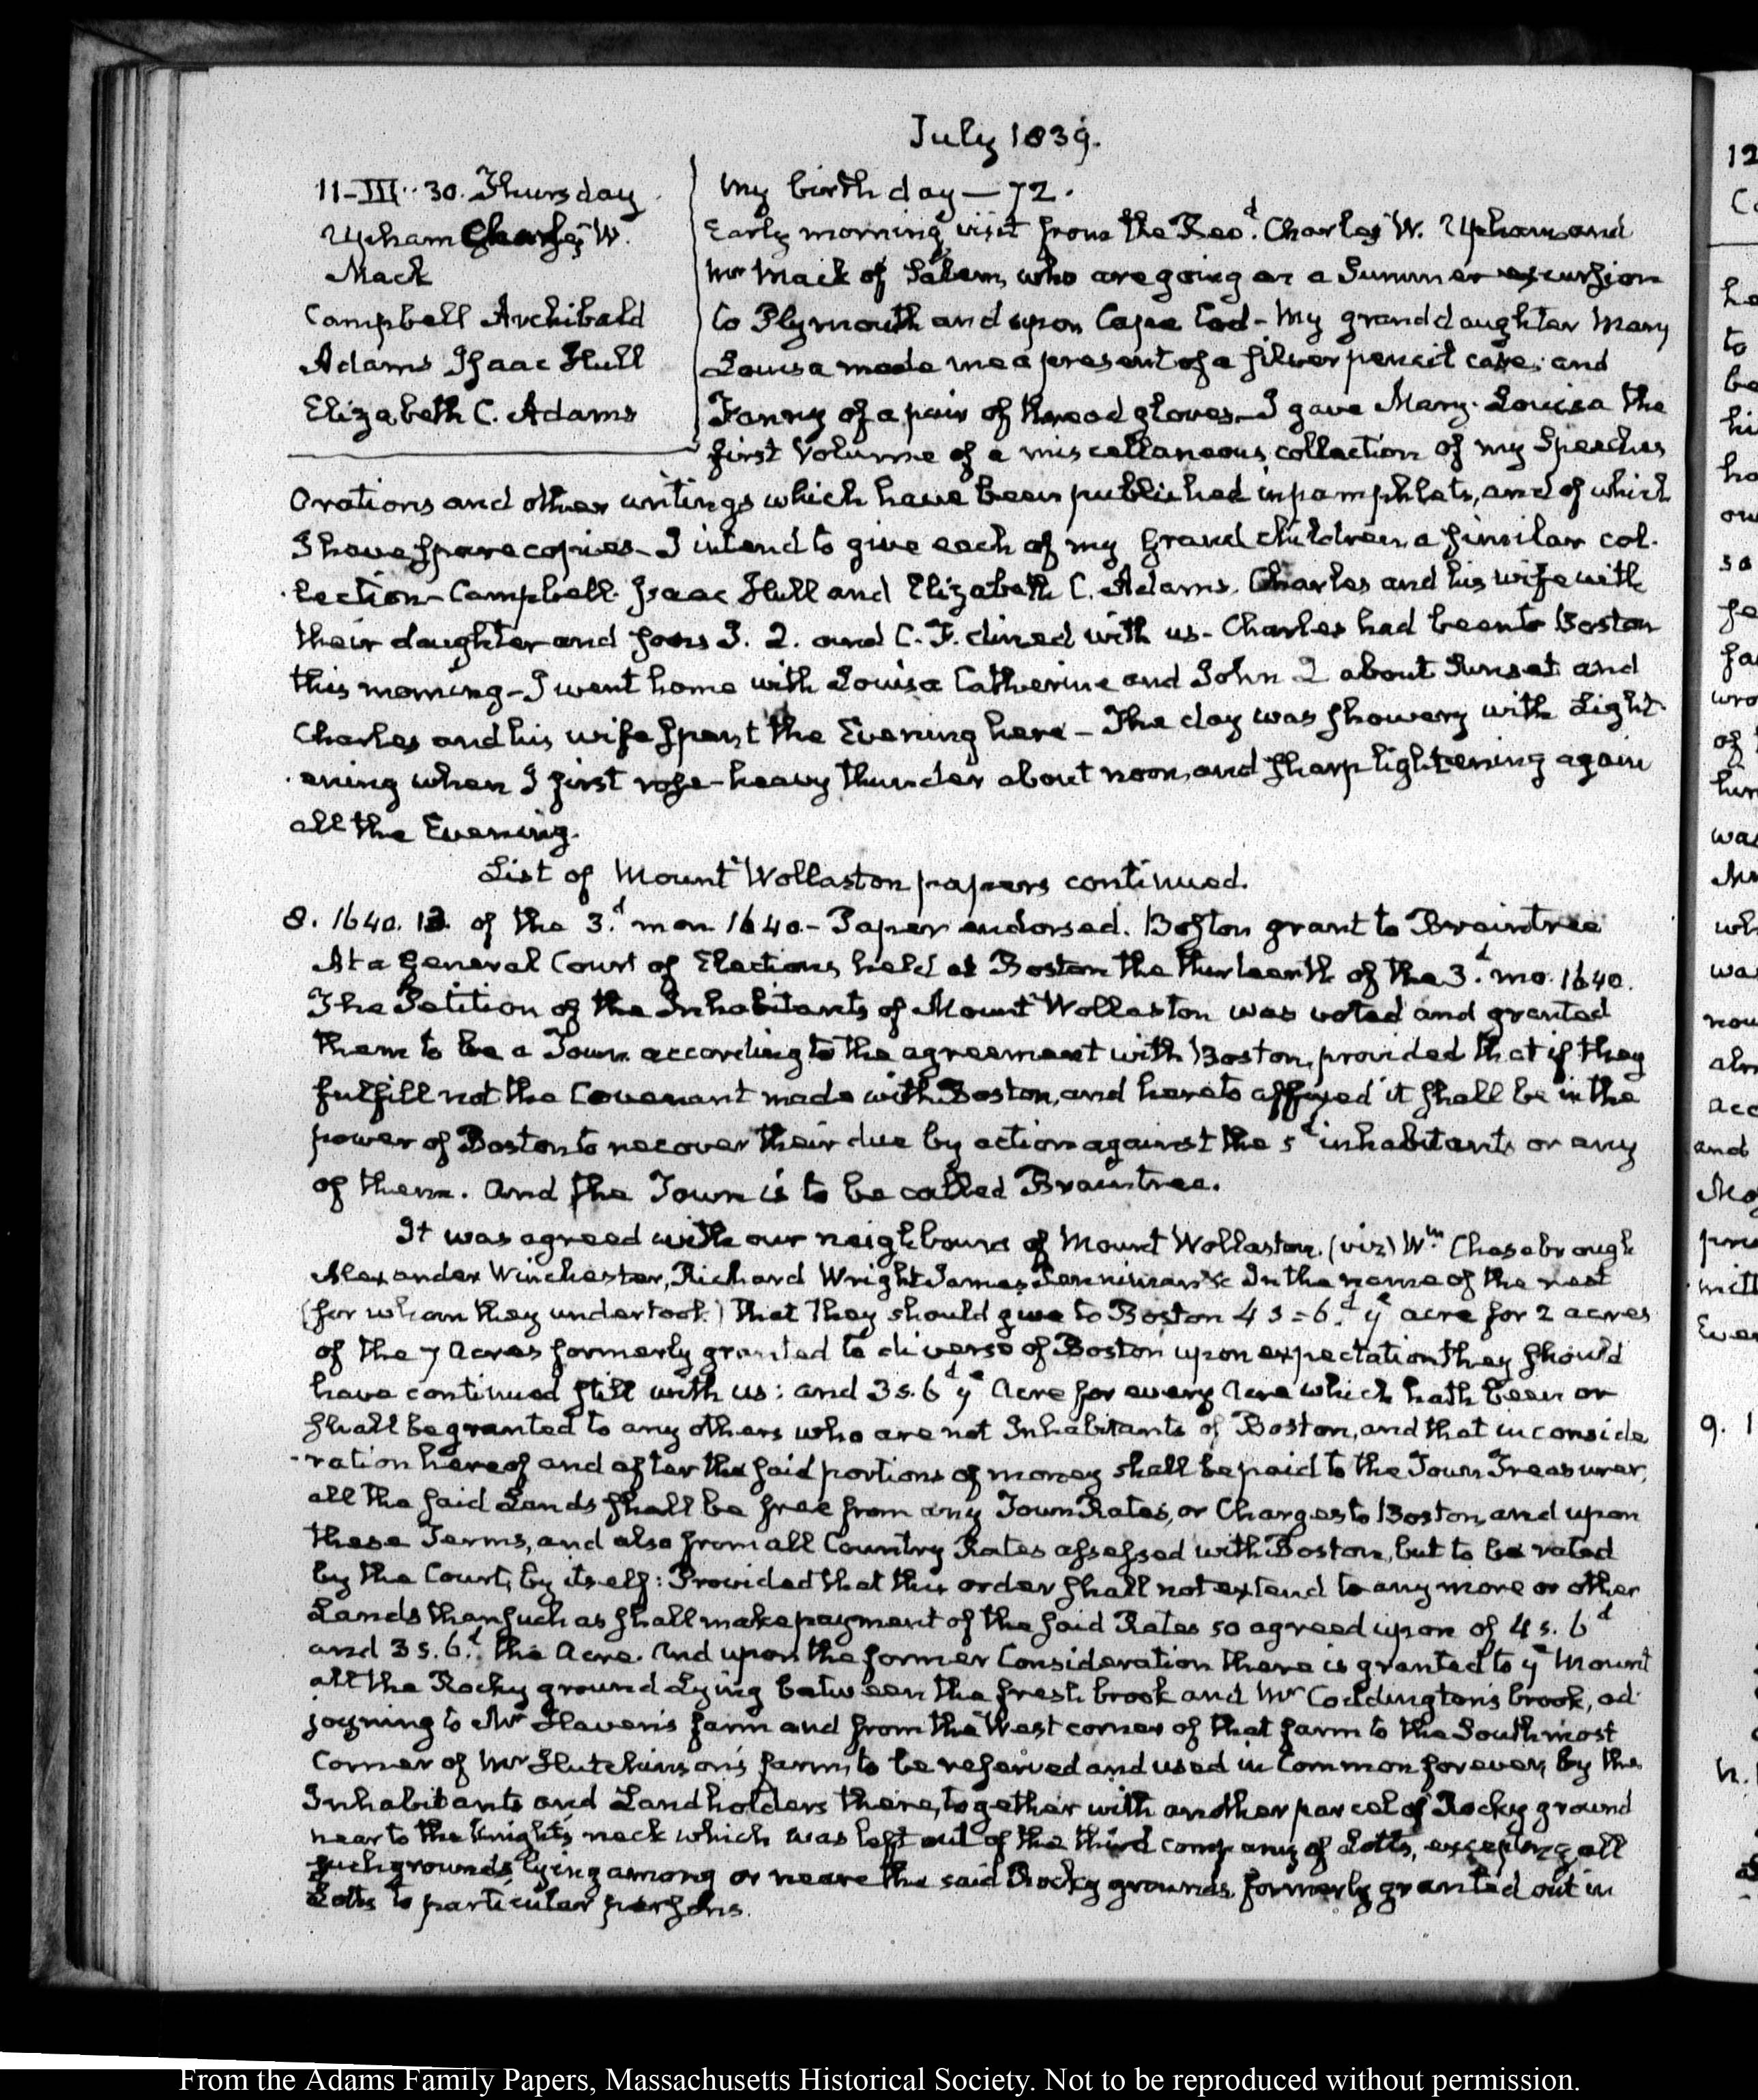 July 1839.
11-III..30. Thursday
Upham Charles W.
Mack
Campbell Archibald
Adams Isaac Hull
Elizabeth C. Adams
My birth day—72.
Early morning visit from the Revd. Charles W. Upham and
Mr Mack of Salem, who are going on a Summer excursion
to Plymouth and upon Cape Cod - My granddaughter Mary
Louisa made me a present of a silver pencil case; and
Fanny of a pair of thread gloves - I gave Mary-Louisa the
first Volume of a miscellaneous collection of my Speeches
Orations and other writings which have been published in pamphlets, and of which
I have spare copies - I intend to give each of my Grand children a similar col-
-lection - Campbell. Isaac Hull and Elizabeth C. Adams. Charles and his wife with
their daughter and sons J. Q. and C. F. dined with us - Charles had been to Boston
this morning - I went home with Louisa Catherine and John Q about Sunset and
Charles and his wife spent the Evening here - The day was showery with Light-
-ening when I first rose - heavy thunder about noon, and sharp lightening again
all the Evening.
List of Mount Wollaston papers continued.
8. 1640. 13. of the 3.d mon 1640. - Paper endorsed. Boston grant to Braintree
At a General Court of Elections held at Boston the thirteenth of the 3.d mo. 1640.
The Petition of the Inhabitants of Mount Wollaston was voted and granted
them to be a Town according to the agreement with Boston, provided that if they
fulfill not the Covenant made with Boston, and hereto affixed it shall be in the
power of Boston to recover their due by action against the sd inhabitants or any
of them. And the Town is to be called Braintree.
It was agreed with our neighbours of Mount Wollaston. (viz) Wm Chesebrough
Alexander Winchester, Richard Wright James Penniman &c In the name of the rest
(for whom they undertook) that they should give to Boston 4s=6.d ye acre for 2 acres
of the 7 Acres formerly granted to diverse of Boston upon expectation they should
have continued still with us: and 3s. 6d ye Acre for every Acre which hath been or
shall be granted to any others who are not Inhabitants of Boston, and that in conside
-ration hereof and after the said portions of money shall be paid to the Town Treasurer,
all the said Lands shall be free from any Town Rates, or Charges to Boston, and upon
these Terms, and also from all Country Rates assessed with Boston, but to be rated
by the Court, by itself: Provided that this order shall not extend to any more or other
Lands than such as shall make payment of the said Rates so agreed upon of 4s. 6d
and 3s. 6.d the Acre. And upon the former Consideration there is granted to ye Mount
all the Rocky ground Lying between the fresh brook and Mr Coddington's brook, ad-
joyning to Mr Haven's farm and from the West corner of that farm to the Southmost
Corner of Mr Hutchinson's farm, to be reserved and used in Common forever, by the
Inhabitants and Landholders there, together with another parcel of Rocky ground
near to the Knight's neck which was left out of the third company of Lotts, excepting all
such grounds lying among or neare the said Rocky grounds, formerly granted out in
Lotts to particular persons.
From the Adams Family Papers, Massachusetts Historical Society. Not to be reproduced without permission.